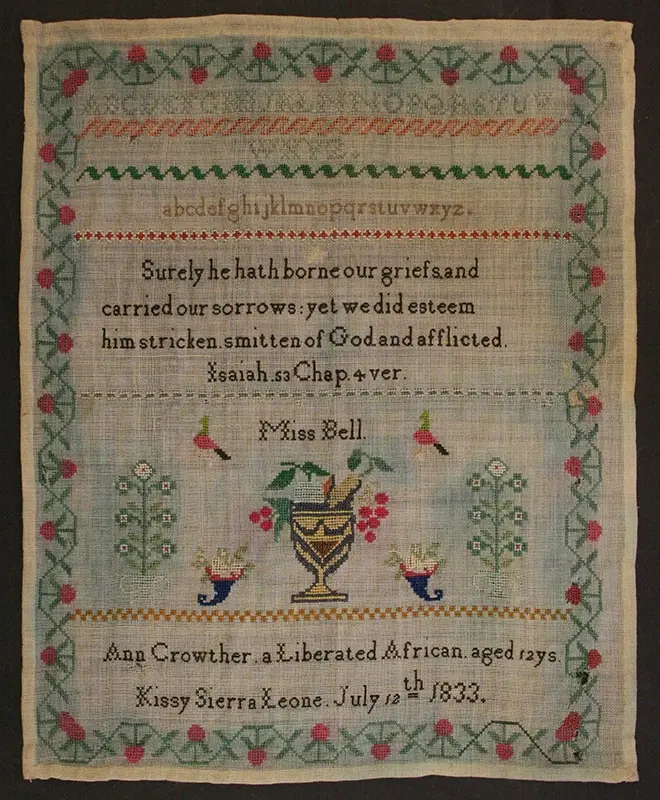 ABCDEFGHIJKLMNOPQRSTUV
WXYZ.
abcdefghijklmnopqrstuvwxyz.
Surely he hath borne our griefs,and
carried our sorrows:yet we did esteem
him stricken,smitten of God,and afflicted.
Isaiah.53 Chap.4 ver.
Miss Bell.
Ann Crowther.a Liberated African.aged 12ys.
Kissy Sierra Leone.July 12th 1833.